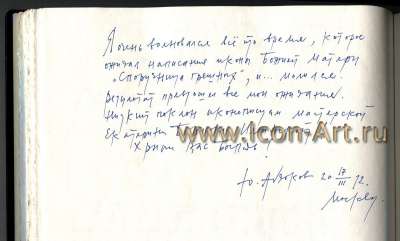 Я очень волновался всё то время, которое
ожидал написания иконы Божией Матери
"Споручница грешных", и... молился.
Результат превзошёл все мои ожидания.
Низкий поклон иконописцам мастерской
Екатерины
Храни Вас Господь!
www.Icon-Art.ru
Ю. 20 17/III 12.
Москва